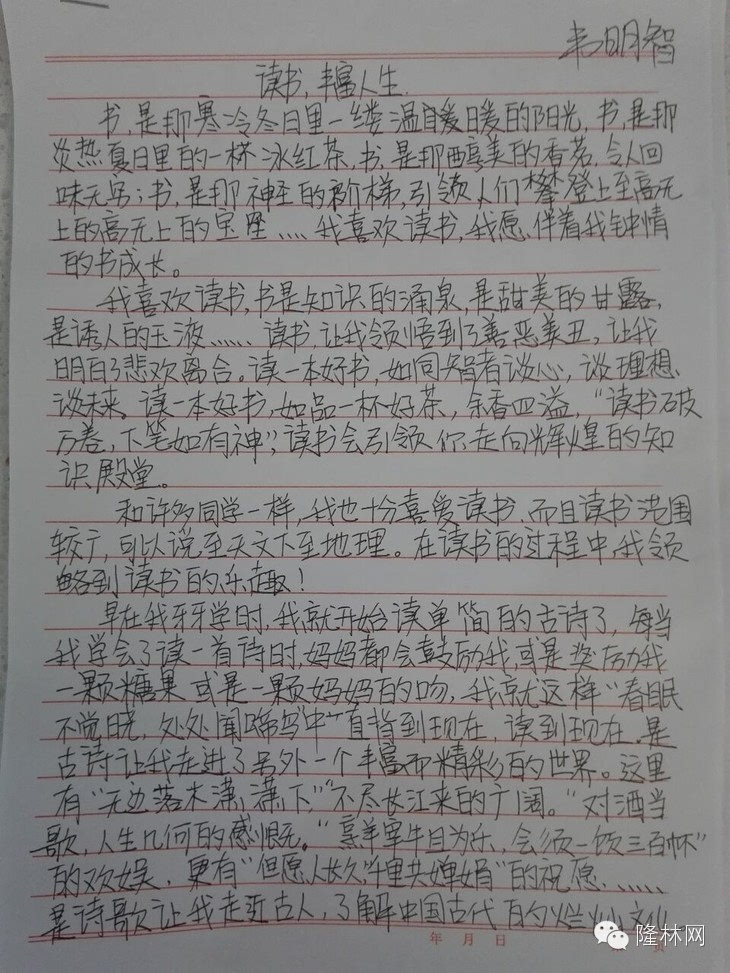 韦明智
读书,丰富人生.
书,是那寒冷冬日里一缕温暖暖的阳光,书,是那
炎热夏日里的一杯冰红茶,书,是那醇美的香茗,令人回
味无穷;书,是那神圣的阶梯,引领人们攀登上至高无
上的高无上的宝座……我喜欢读书,我愿伴着我钟情
的书成长。
我喜欢读书,书是知识的涌泉,是甜美的甘露,
是诱人的玉液……读书,让我领悟到了善恶美丑,让我
明白了悲欢离合。读一本好书,如同智者谈心,谈理想、
谈未来。读一本好书,如品一杯好茶,余香四溢,“读书破
万卷,下笔如有神”,读书会引领你走向辉煌的知
识殿堂。
和许多同学一样,我也十分喜爱读书,而且读书范围
较广,可以说至天文下至地理。在读书的过程中,我领
略到读书的乐趣!
早在我牙牙学时,我就开始读单简的古诗了,每当
我学会了读一首诗时,妈妈都会鼓励我,或是奖励我
一颗糖果或是一颗妈妈的吻,我就这样“春眠
不觉晓,处处闻啼鸟”中一直背到现在,读到现在.是
古诗让我走进了另外一个丰富而精彩的世界。这里
有“无边落木潇潇下”“不尽长江来的广阔。“对酒当
歌,人生几何的感慨。“烹羊宰牛且为乐,会须一饮三百杯”
的欢娱,更有“但愿人长久,千里共婵娟”的祝愿,……
是诗歌让我走近古人,了解中国古代的灿烂文化
年 月 日
隆林网